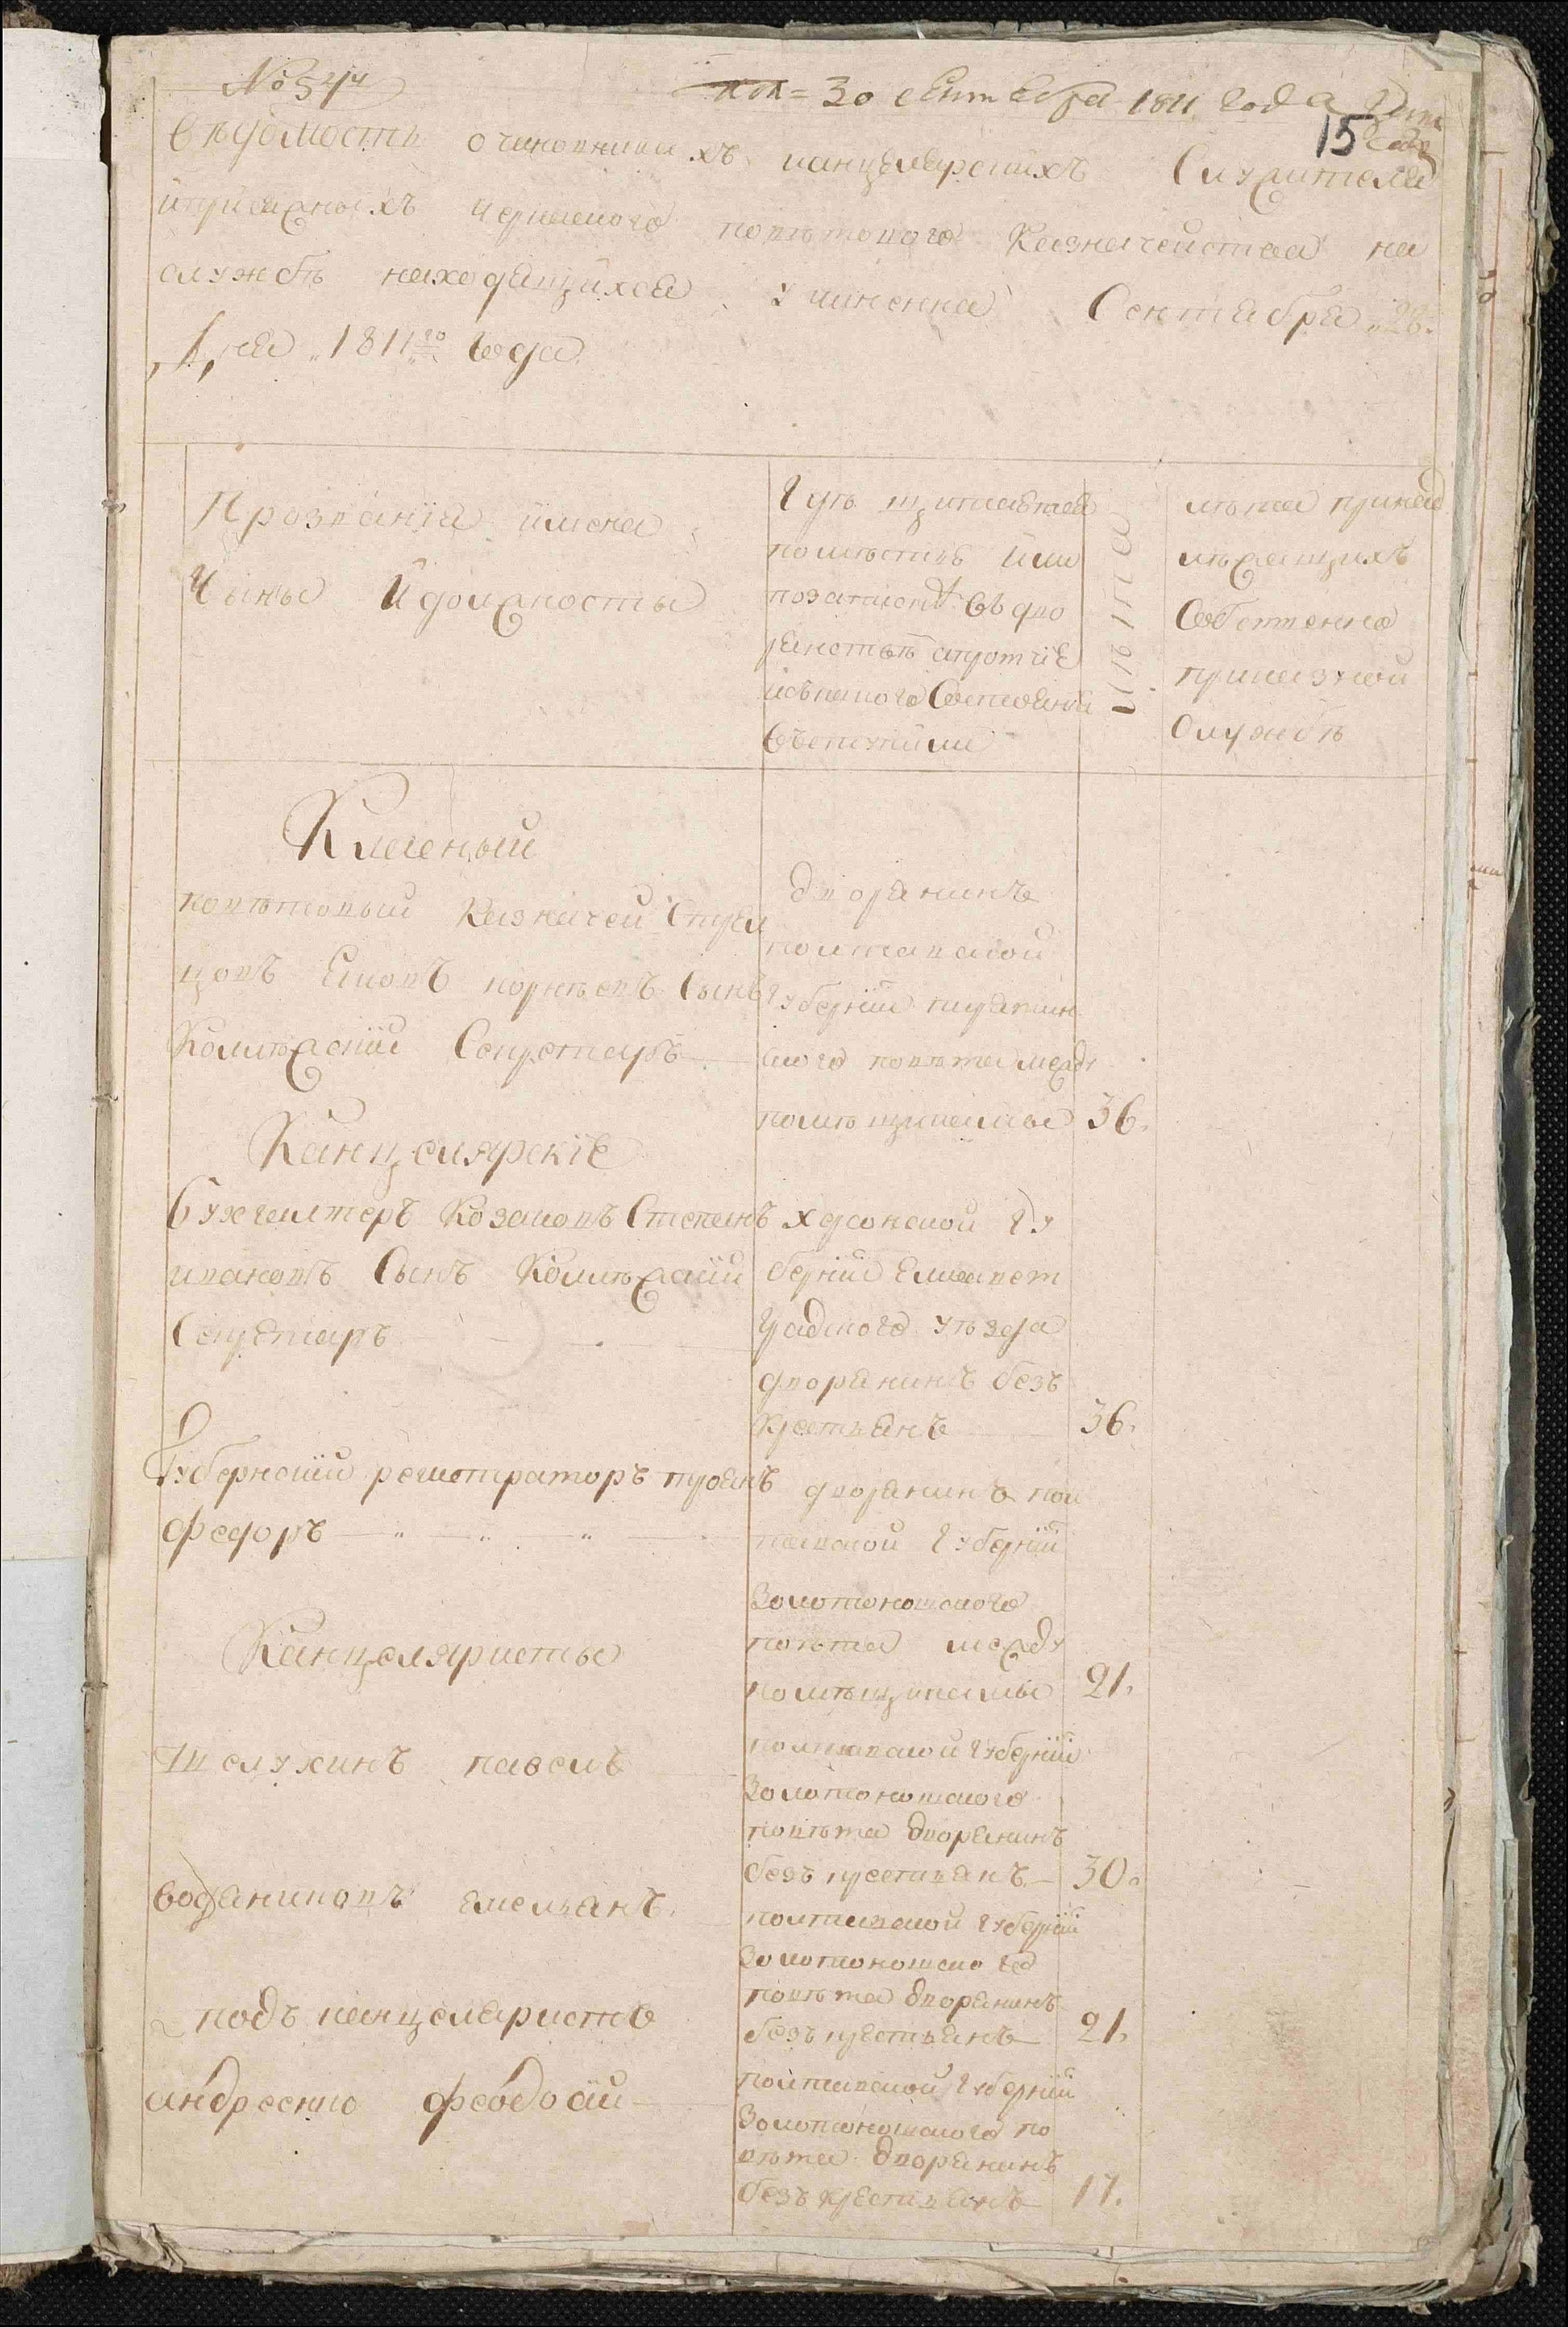 № 544
30 сентебра 1811 года
15
Ведомость очиновникахъ канцелярскихъ Служителя
иприсяжныхъ поветового Казначейства на
службѣ находящихся учиненна Сентября 28.
Дня 1811го года
Прозванія имена
Чыны Идолжносты
Гдѣ щитаетса
помѣстю или
въ дво
рянствѣ
лѣта принад
лѣжащихъ
Собственно
приказной
Службѣ
Класный
поветовый Казначей Стрел
цовъ Сынъ
Колѣжскій Секретарь
дворянинъ
полтавской
губерніи пирятин
ского повета между
помѣщиками 36.
Канцелярскіе
бухгалтеръ Козаковъ Степанъ
ивановъ Сынъ Колѣжскій
Секретарь
херсонской гу
берніи Елисавет
градского уѣзда
дворянинъ безъ
крестьянъ 36.
Губернскій регистраторъ
федоръ
дворянинъ пол
тавской губерніи
Золотоношского
повета между
помѣщиками 21.
Канцеляристы
павелъ
полтавской губерніи
Золотоношского
повѣта дворянинъ
безъ крестьянъ 30.
водяниковъ емельянъ
полтавской губерніи
Золотоношского
повѣта дворянинъ
безъ крестьянъ 21.
подъ канцеляристъ
андреенко феодосій
полтавской губерніи
Золотоношского по
вѣта дворянинъ
безъ крестьянъ 17.